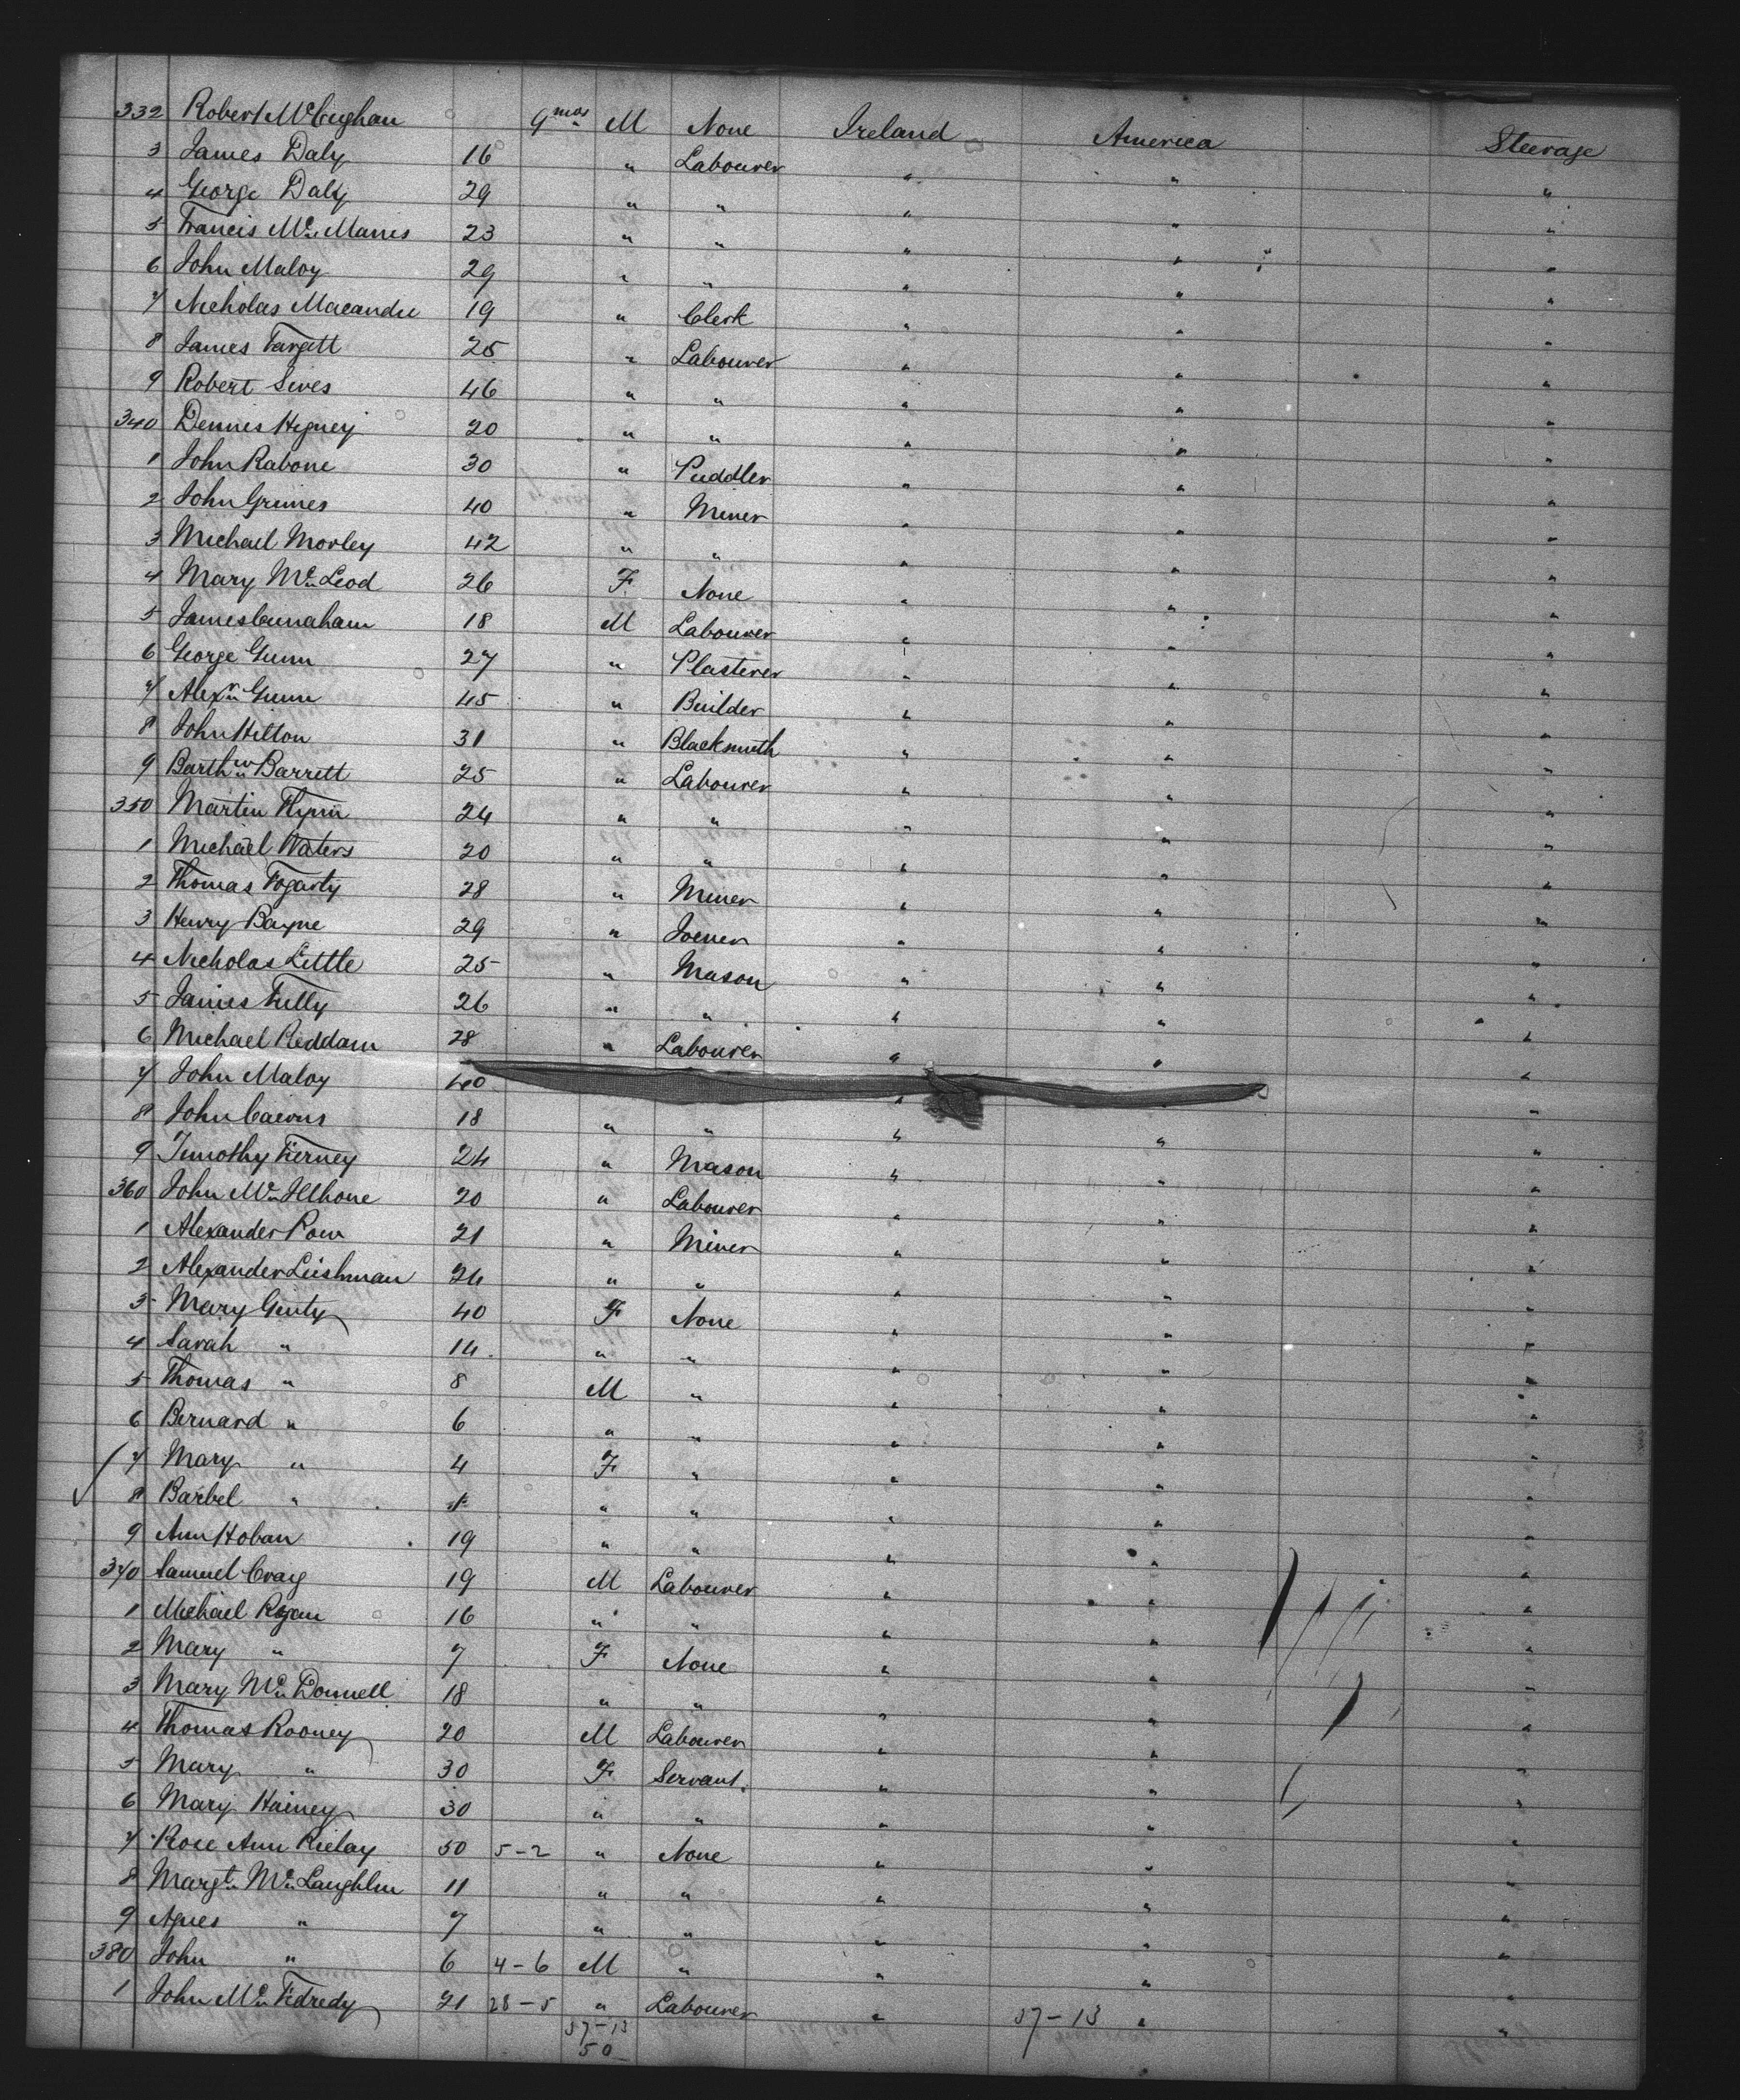 332 Robert McCughan 9 mos M None Ireland America Steerage
3 James Daly 16 " Labourer " " "
4 George Daly 29 " " " " "
5 Francis Mc Manus 23 " " " " "
6 John Maloy 29 " " " " "
7 Nicholas Macandie 19 " Clerk " " "
8 James Fargett 25 " Labourer " " "
9 Robert Sives 46 " " " " "
340 Dennis Hegney 20 " " " " "
1 John Rabone 30 " Puddler " " "
2 John Grimes 40 " Miner " " "
3 Michael Morley 42 " " " " "
4 Mary Mc Leod 26 F None " " "
5 James Cunaham 18 M Labourer " " "
6 George Gunn 27 " Plasterer " " "
7 Alexr Gunn 45 " Builder " " "
8 John Hilton 31 " Blacksmith " " "
9 Barthw Barrett 25 " Labourer " " "
350 Martin Flynn 24 " " " " "
1 Michael Waters 20 " " " " "
2 Thomas Fogarty 28 " Miner " " "
3 Henry Bayne 29 " Joiner " " "
4 Nicholas Little 25 " Mason " " "
5 James Tully 26 " " " " "
6 Michael Reddam 28 " Labourer " " "
7 John Maloy 40 "
8 John Cairns 18 " " " " "
9 Timothy Tierney 24 " Mason " " "
360 John Mc Ilhone 20 " Labourer " " "
1 Alexander Pow 21 " Miner " " "
2 Alexander Leishman 24 " " " " "
3 Mary Ginty 40 F None " " "
4 Sarah " 14 " " " " "
5 Thomas " 8 M " " " "
6 Bernard " 6 " " " " "
7 Mary " 4 F " " " "
8 Barbel " " " " " "
9 Ann Hoban 19 " " " " "
370 Samuel Craig 19 M Labourer " " "
1 Michael Ryan 16 " " " " "
2 Mary " 7 F None " " "
3 Mary Mc Donnell 18 " " " " "
4 Thomas Rooney 20 M Labourer " " "
5 Mary " 30 F Servant. " " "
6 Mary Hainey 30 " " " " "
7 Rose Ann Rielay 50 5-2 " None " " "
8 Margt Mc Laughlin 11 " " " " "
9 Agnes " 7 " " " " "
380 John " 6 4-6 M " " " "
1 John Mc Fidredy 21 28-5 " Labourer " 37-13 " "
37-13
50